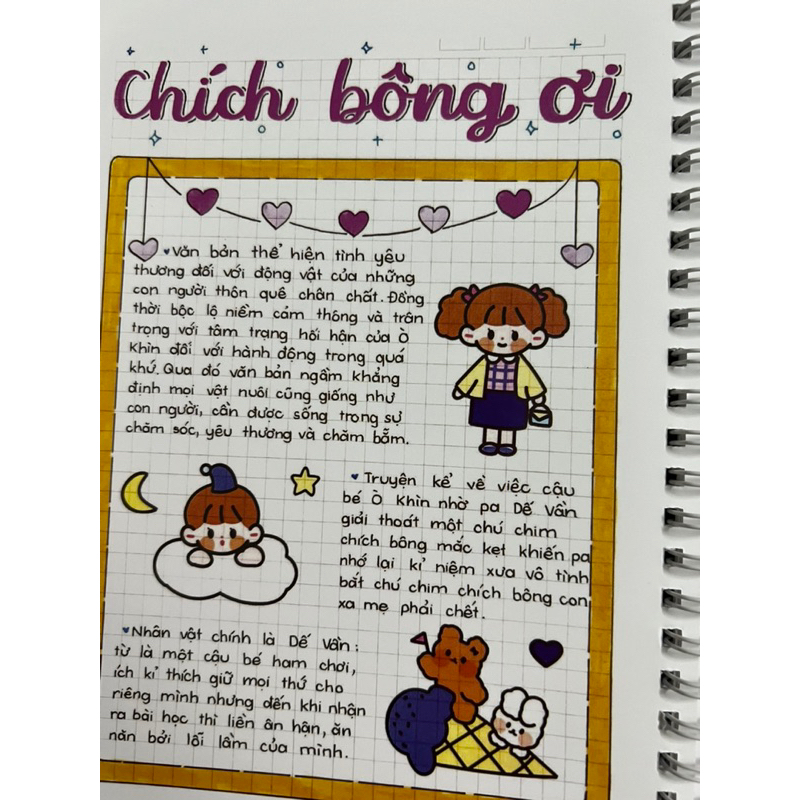 Chích bông ơi
Văn bản thể hiện tình yêu
thương đối với động vật của những
con người thôn quê chân chất. Đồng
thời bộc lộ niềm cảm thông và trân
trọng với tâm trạng hối hận của Ò
Khìn đối với hành động trong quá
khứ. Qua đó văn bản ngầm khẳng
định mọi vật nuôi cũng giống như
con người, cần được sống trong sự
chăm sóc, yêu thương và chăm bẵm.
Truyện kể về việc cậu
bé Ò Khìn nhờ pa Dế Vần
giải thoát một chú chim
chích bông mắc kẹt khiến pa
nhớ lại kỉ niệm xưa vô tình
bắt chú chim chích bông con
xa mẹ phải chết.
Nhân vật chính là Dế Vần:
từ là một cậu bé ham chơi,
ích kỉ thích giữ mọi thứ cho
riêng mình nhưng đến khi nhận
ra bài học thì liền ân hận, ăn
năn bởi lỗi lầm của mình.